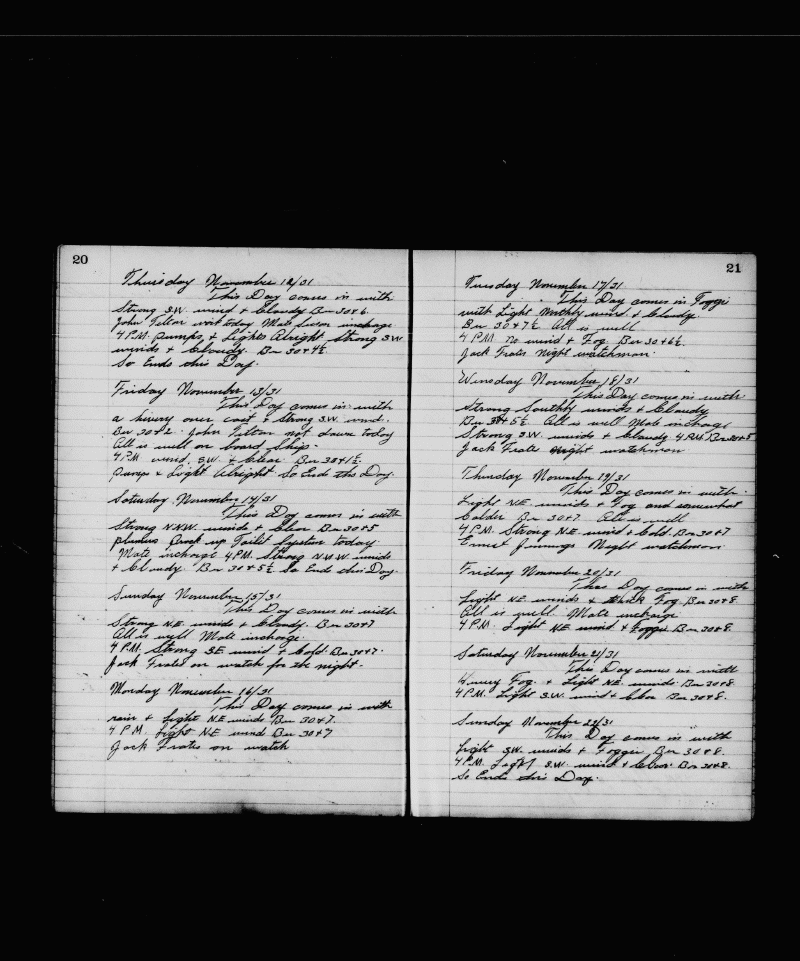 20
Thursday November 12/31
This Day comes in with
Strong S.W. wind & Cloudy Bar 30+6.
John Tilton went today Mate in charge
4 P.M. Pumps & Lights Alright Strong S.W.
winds & Cloudy. Bar 30+4½
So Ends this Day.
Friday November 13/31
This Day comes in with
a heavy over cast & Strong S.W. wind.
Bar 30+2. John Tilton not down today
All is well on board Ship.
4 P.M. wind S.W. & Clear. Bar 30+1½.
Pumps & Light Alright So Ends this Day.
Saturday November 14/31
This Day comes in with
Strong N.N.W. winds & Clear Bar 30+5
up Toilet System today.
Mate incharge 4 P.M. Strong N.N.W. winds
& Cloudy. Bar 30+5½ So Ends this Day.
Sunday November 15/31
This Day comes in with
Strong N.E. winds & Cloudy. Bar 30+7
All is well Mate incharge.
4 P.M. Strong S.E. wind & Cold. Bar 30+7.
Jack Frates on watch for the night.
Monday November 16/31
This Day comes in with
rain & Light N.E. winds Bar 30+7.
4 P.M. Light N.E. wind Bar 30+7
Jack Frates on watch
21
Tuesday November 17/31
This Day comes in Foggi
with Light Northly wind. & Cloudy.
Bar 30+7½ All is well
4 P.M. No wind & Fog. Bar 30+6½.
Jack Frates Night watchman.
Wensday November 18/31
This Day comes in with
Strong Southly winds & Cloudy
Bar 30+5½ All is well Mate incharge
Strong S.W. winds & Cloudy 4 P.M. Bar 30+5
Jack Frates Night watchman
Thursday November 19/31
This Day comes in with
Light N.E. winds & Fog and somewhat
Colder Bar 30+7 All is well
4 P.M. Strong N.E. wind & Cold. Bar 30+7
Ernest Jennings Night watchman
Friday November 20/31
This Day comes in with
Light N.E. winds & thick Fog Bar 30+8.
All is well. Mate incharge
4 P.M. Light N.E. wind & Foggi Bar 30+8.
Saturday November 21/31
This Day comes in with
Heavey Fog. & Light N.E. winds. Bar 30+8.
4 P.M. Light S.W. wind & Clear Bar 30+8.
Sunday November 22/31
This Day comes in with
Light S.W. winds & Foggi Bar 30+8.
4 P.M. Light S.W. wind & Clear. Bar 30+8.
So Ends this Day.